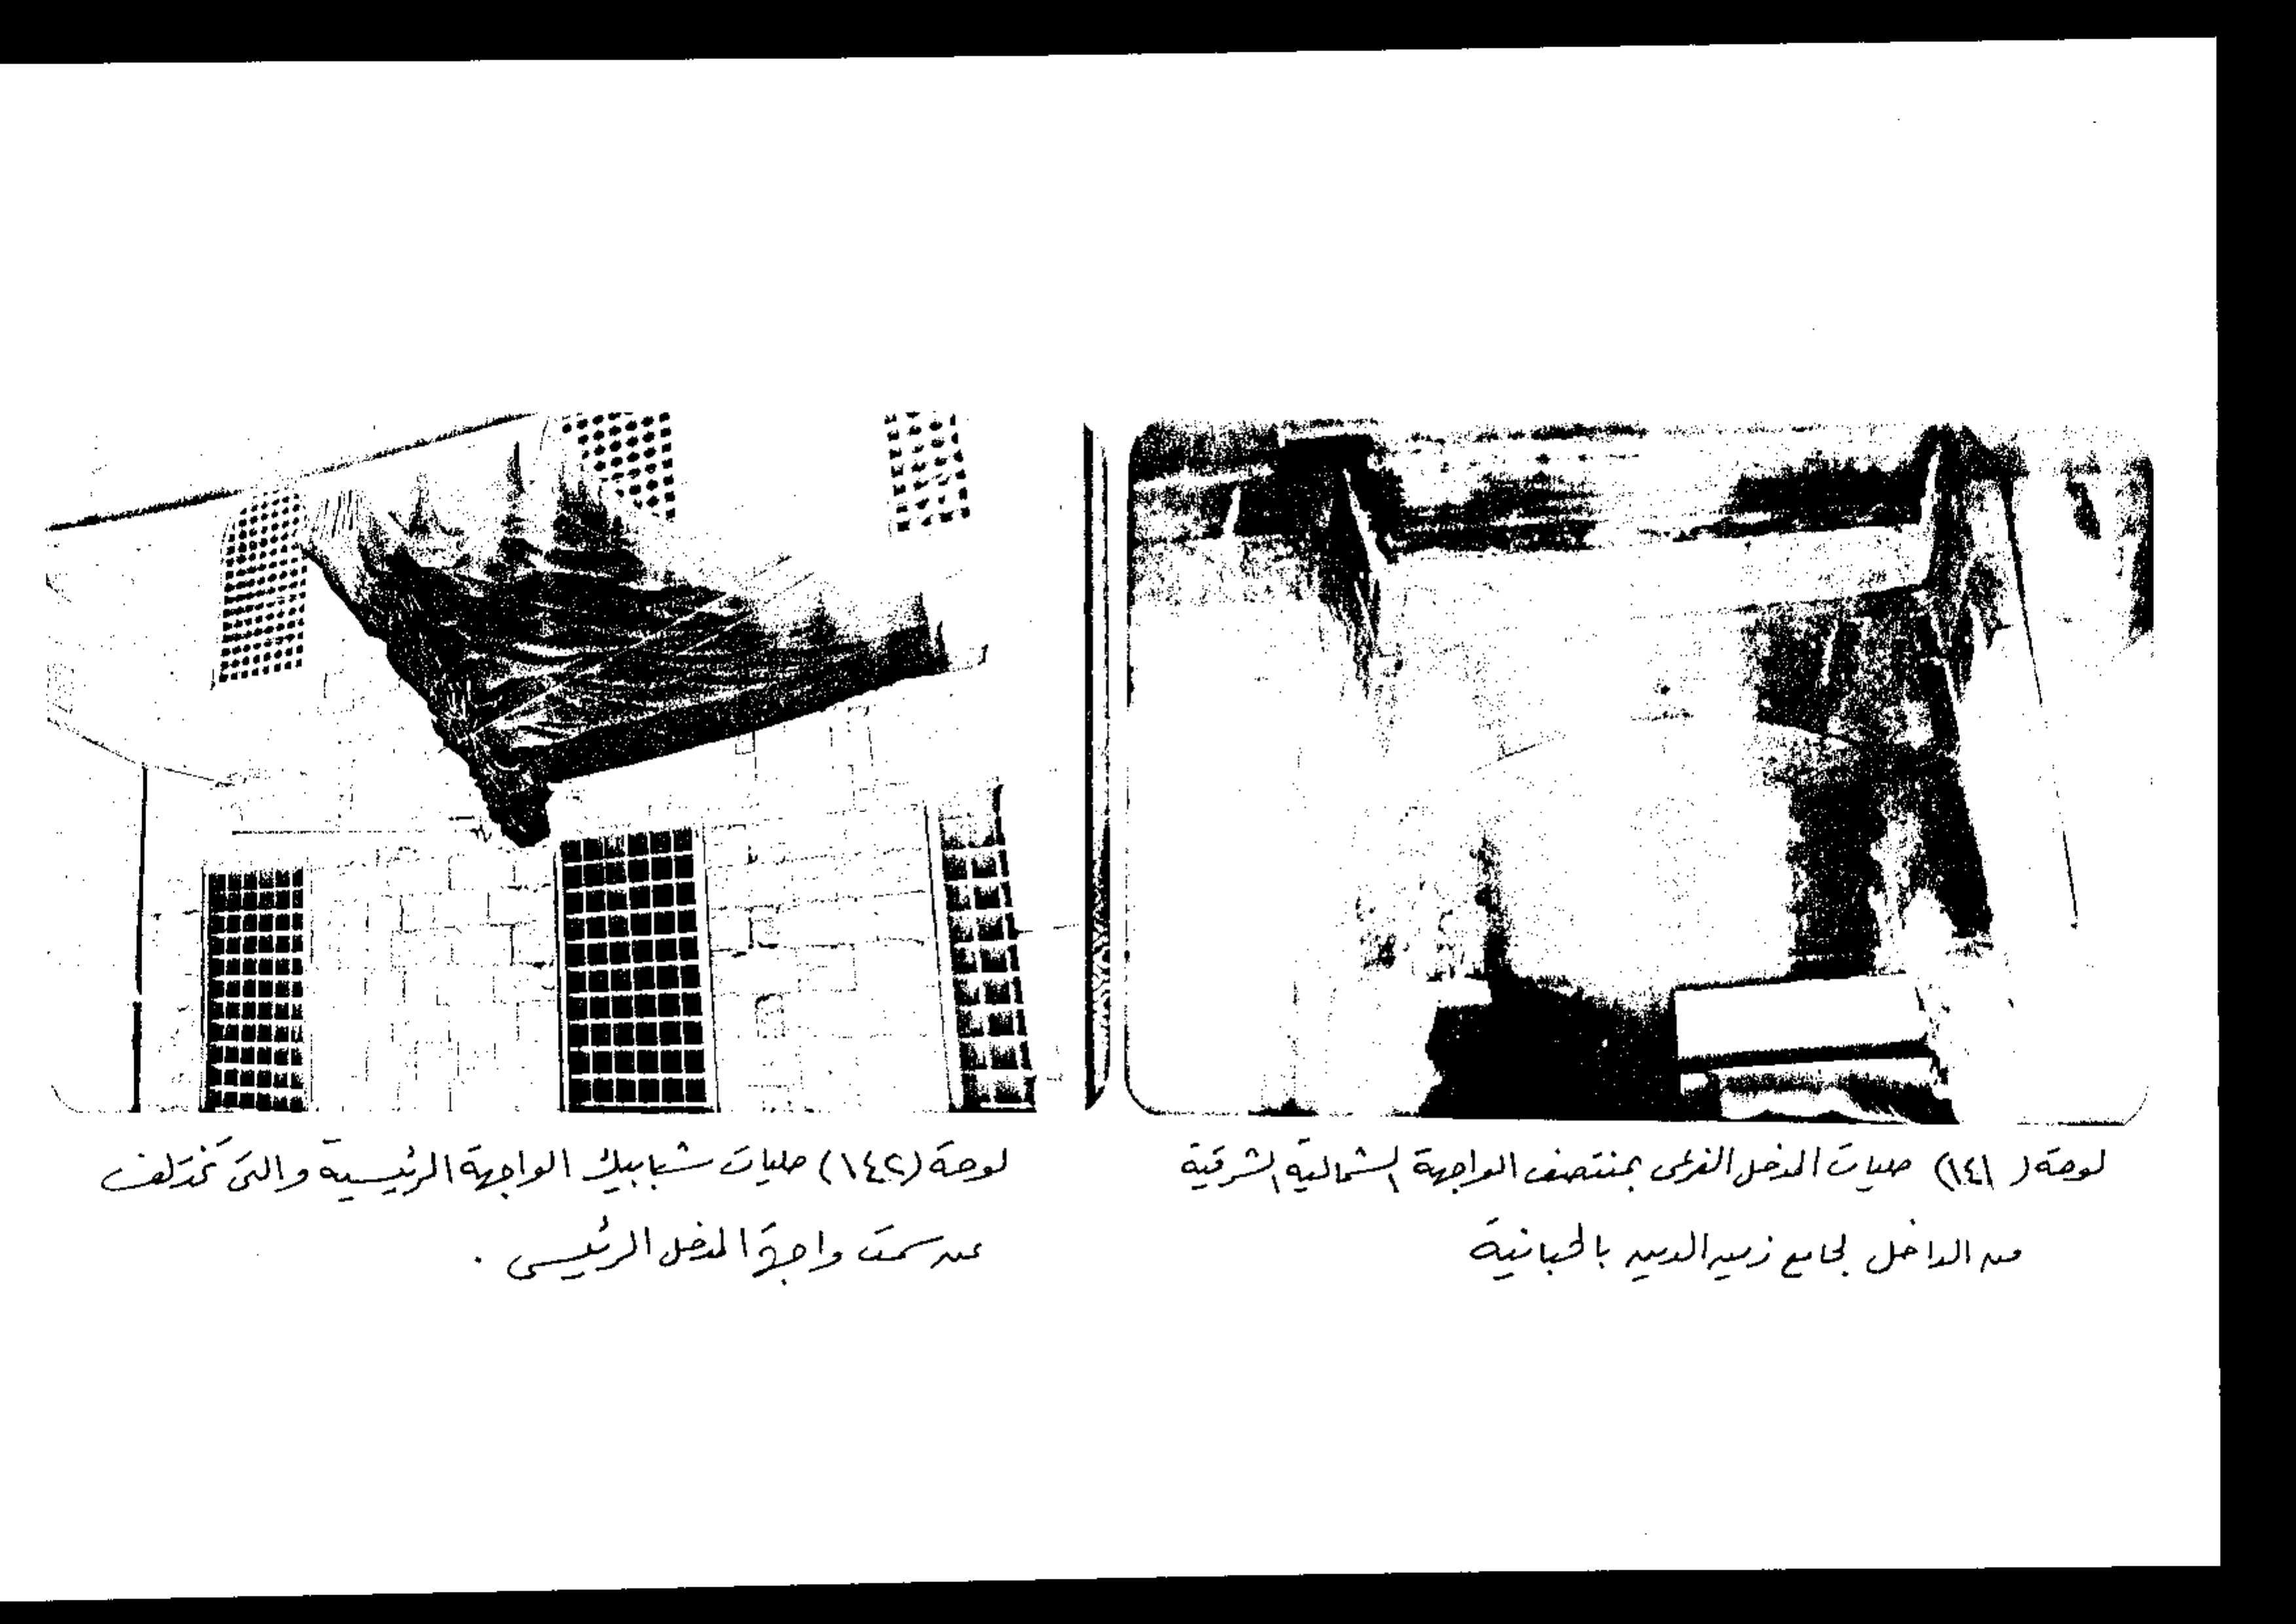 لوحة (١٤١) حليات المدخل الفرعى بمنتصف الواجهة الشمالية الشرقية
من الداخل لجامع زين الدين بالحبانية
لوحة (١٤٢) حليات شبابيك الواجهة الرئيسية والتى تختلف
عن سمت واجهة المدخل الرئيسى .